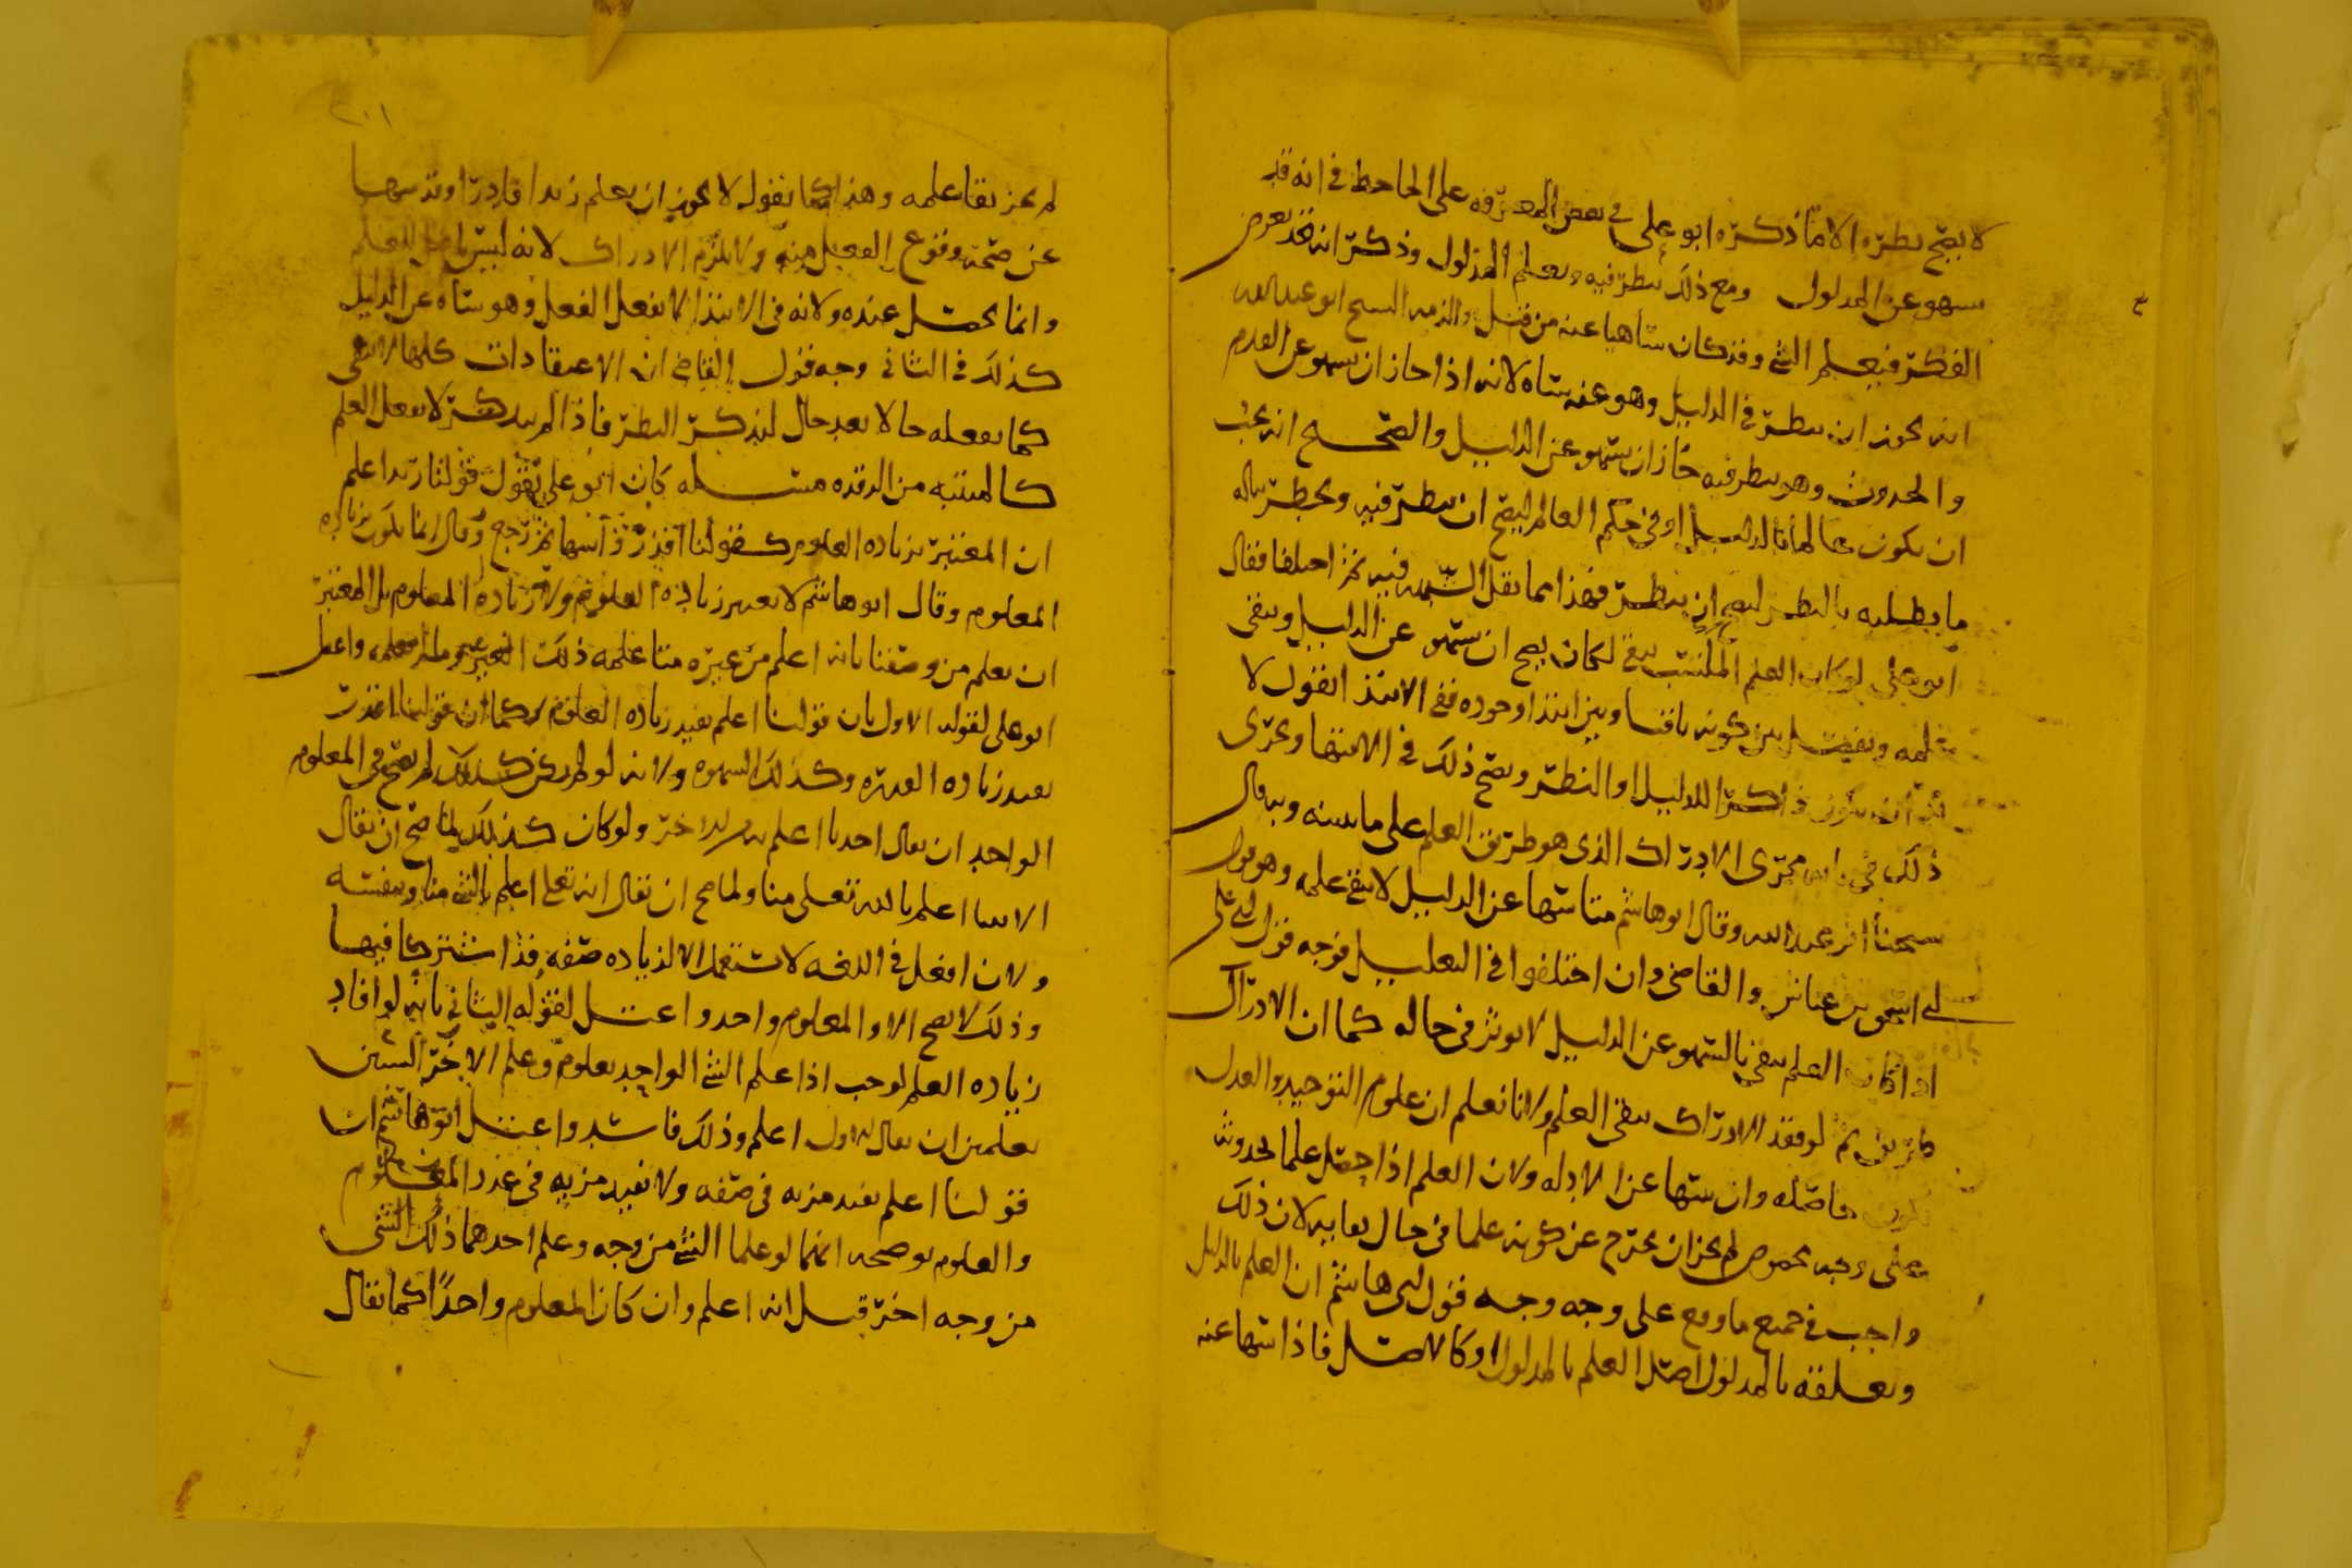 لا يصح نظره الا ما ذكره ابو علي في بعض المعرفه على الجاحظ في انه قد
يسهو عن المدلول ومع ذلك ينظر فيه ويعلم المدلول وذكر انه قد يعرض
الفكر فيعلم الشي وقد كان ساهيا عنه من قبل والزمه الشيخ ابو عبد الله
انه يجوز ان ينظر في الدليل وهو عنه ساه لانه اذا جاز ان يسهو عن القدم
والحدوث وهو ينظر فيه جاز ان يسهو عن الدليل والصحيح انه يجب
ان يكون عالما بالدليل او في حكم العالم ليصح ان ينظر فيه ويخطر بباله
ما يطلبه بالنظر ليصح ان ينظر فهذا مما يقل الشبه فيه ثم اختلفا فقال
ابو علي لو كان العلم المكتسب يبقى لكان يصح ان يسهو عن الدليل ويبقى
علمه ويفصل بين كونه باقيا وبين ابتدا وجوده ففي الابتدا نقول لا
بد ان يكون ذاكرا للدليل او النظر ويصح ذلك في الانتها ويجري
ذلك في بابه مجرى الادراك الذي هو طريق العلم على ما نبينه وبه قال
شيخنا ابو عبد الله وقال ابو هاشم متى سها عن الدليل لا يبقى علمه وهو قول
ابي اسحق بن عياش والقاضي وان اختلفوا في التعليل فوجه قول ابي علي
اذا كان العلم يبقى بالسهو عن الدليل لا يوثر في حاله كما ان الادراك
طريق ثم لو فقد الادراك يبقى العلم ولانا نعلم ان علوم التوحيد والعدل
تكون حاصله وان سها عن الادله ولان العلم اذا حصل علما لحدوثه
على وجه مخصوص لم يجز ان يخرج عن كونه علما في حال بقايه لان ذلك
واجب في جميع ما وقع على وجه وجه قول ابي هاشم ان العلم بالدليل
وتعلقه بالمدلول اصل العلم بالمدلول او كالاصل فاذا سها عنه
لم يجز بقا علمه وهذا كما نقول لا يجوز ان يعلم زيدا قادرا وقد سها
عن صحه وقوع الفعل منه ولا يلزم الادراك لانه ليس باصل للعلم
وانما يحصل عنده ولانه في الابتدا لا يفعل الفعل وهو ساه عن الدليل
كذلك في الثاني وجه قول القاضي ان الاعتقادات كلها لا تبقى
كما يفعله حالا بعد حال لتذكر النظر فاذا لم يتذكر لا يفعل العلم
كالمنتبه من الرقده مسله كان ابو علي يقول قولنا زيد اعلم
ان المعتبر بزياده العلوم كقولنا اقدر ثم رجع وقال انما يكون بزياده
المعلوم وقال ابو هاشم لا يعتبر زياده العلوم ولا زياده المعلوم بل المعتبر
ان يعلم من وصفنا بانه اعلم من غيره متى علمه ذلك الغير وما لم يعلمه واعتل
ابو علي لقوله الاول بان قولنا اعلم يفيد زياده العلوم كما ان قولنا اقدر
يفيد زياده القدره وكذلك الشهوه ولانه لو لم يكن كذلك لم يصح في المعلوم
الواحد ان يقال احدنا اعلم به من الاخر ولو كان كذلك لما صح ان يقال
الانبيا اعلم بالله تعلى منا ولما صح ان يقال انه تعلى اعلم بالشي منا وبنفسه
ولان افعل في اللغه لا تستعمل الا لزياده صفه قد اشتركا فيها
وذلك لا يصح الا والمعلوم واحد واعتل لقوله الثاني بانه لو افاد
زياده العلم لوجب اذا علم الشي الواحد بعلوم وعلم الاخر الشيين
بعلمين ان يقال الاول اعلم وذلك فاسد واعتل ابو هاشم ان
قولنا اعلم يفيد مزيه في صفه ولا يفيد مزيه في عدد المعلوم
والعلوم يوضحه انهما لو علما الشي من وجه وعلم احدهما ذلك الشي
من وجه اخر قيل انه اعلم وان كان المعلوم واحدا كما يقال